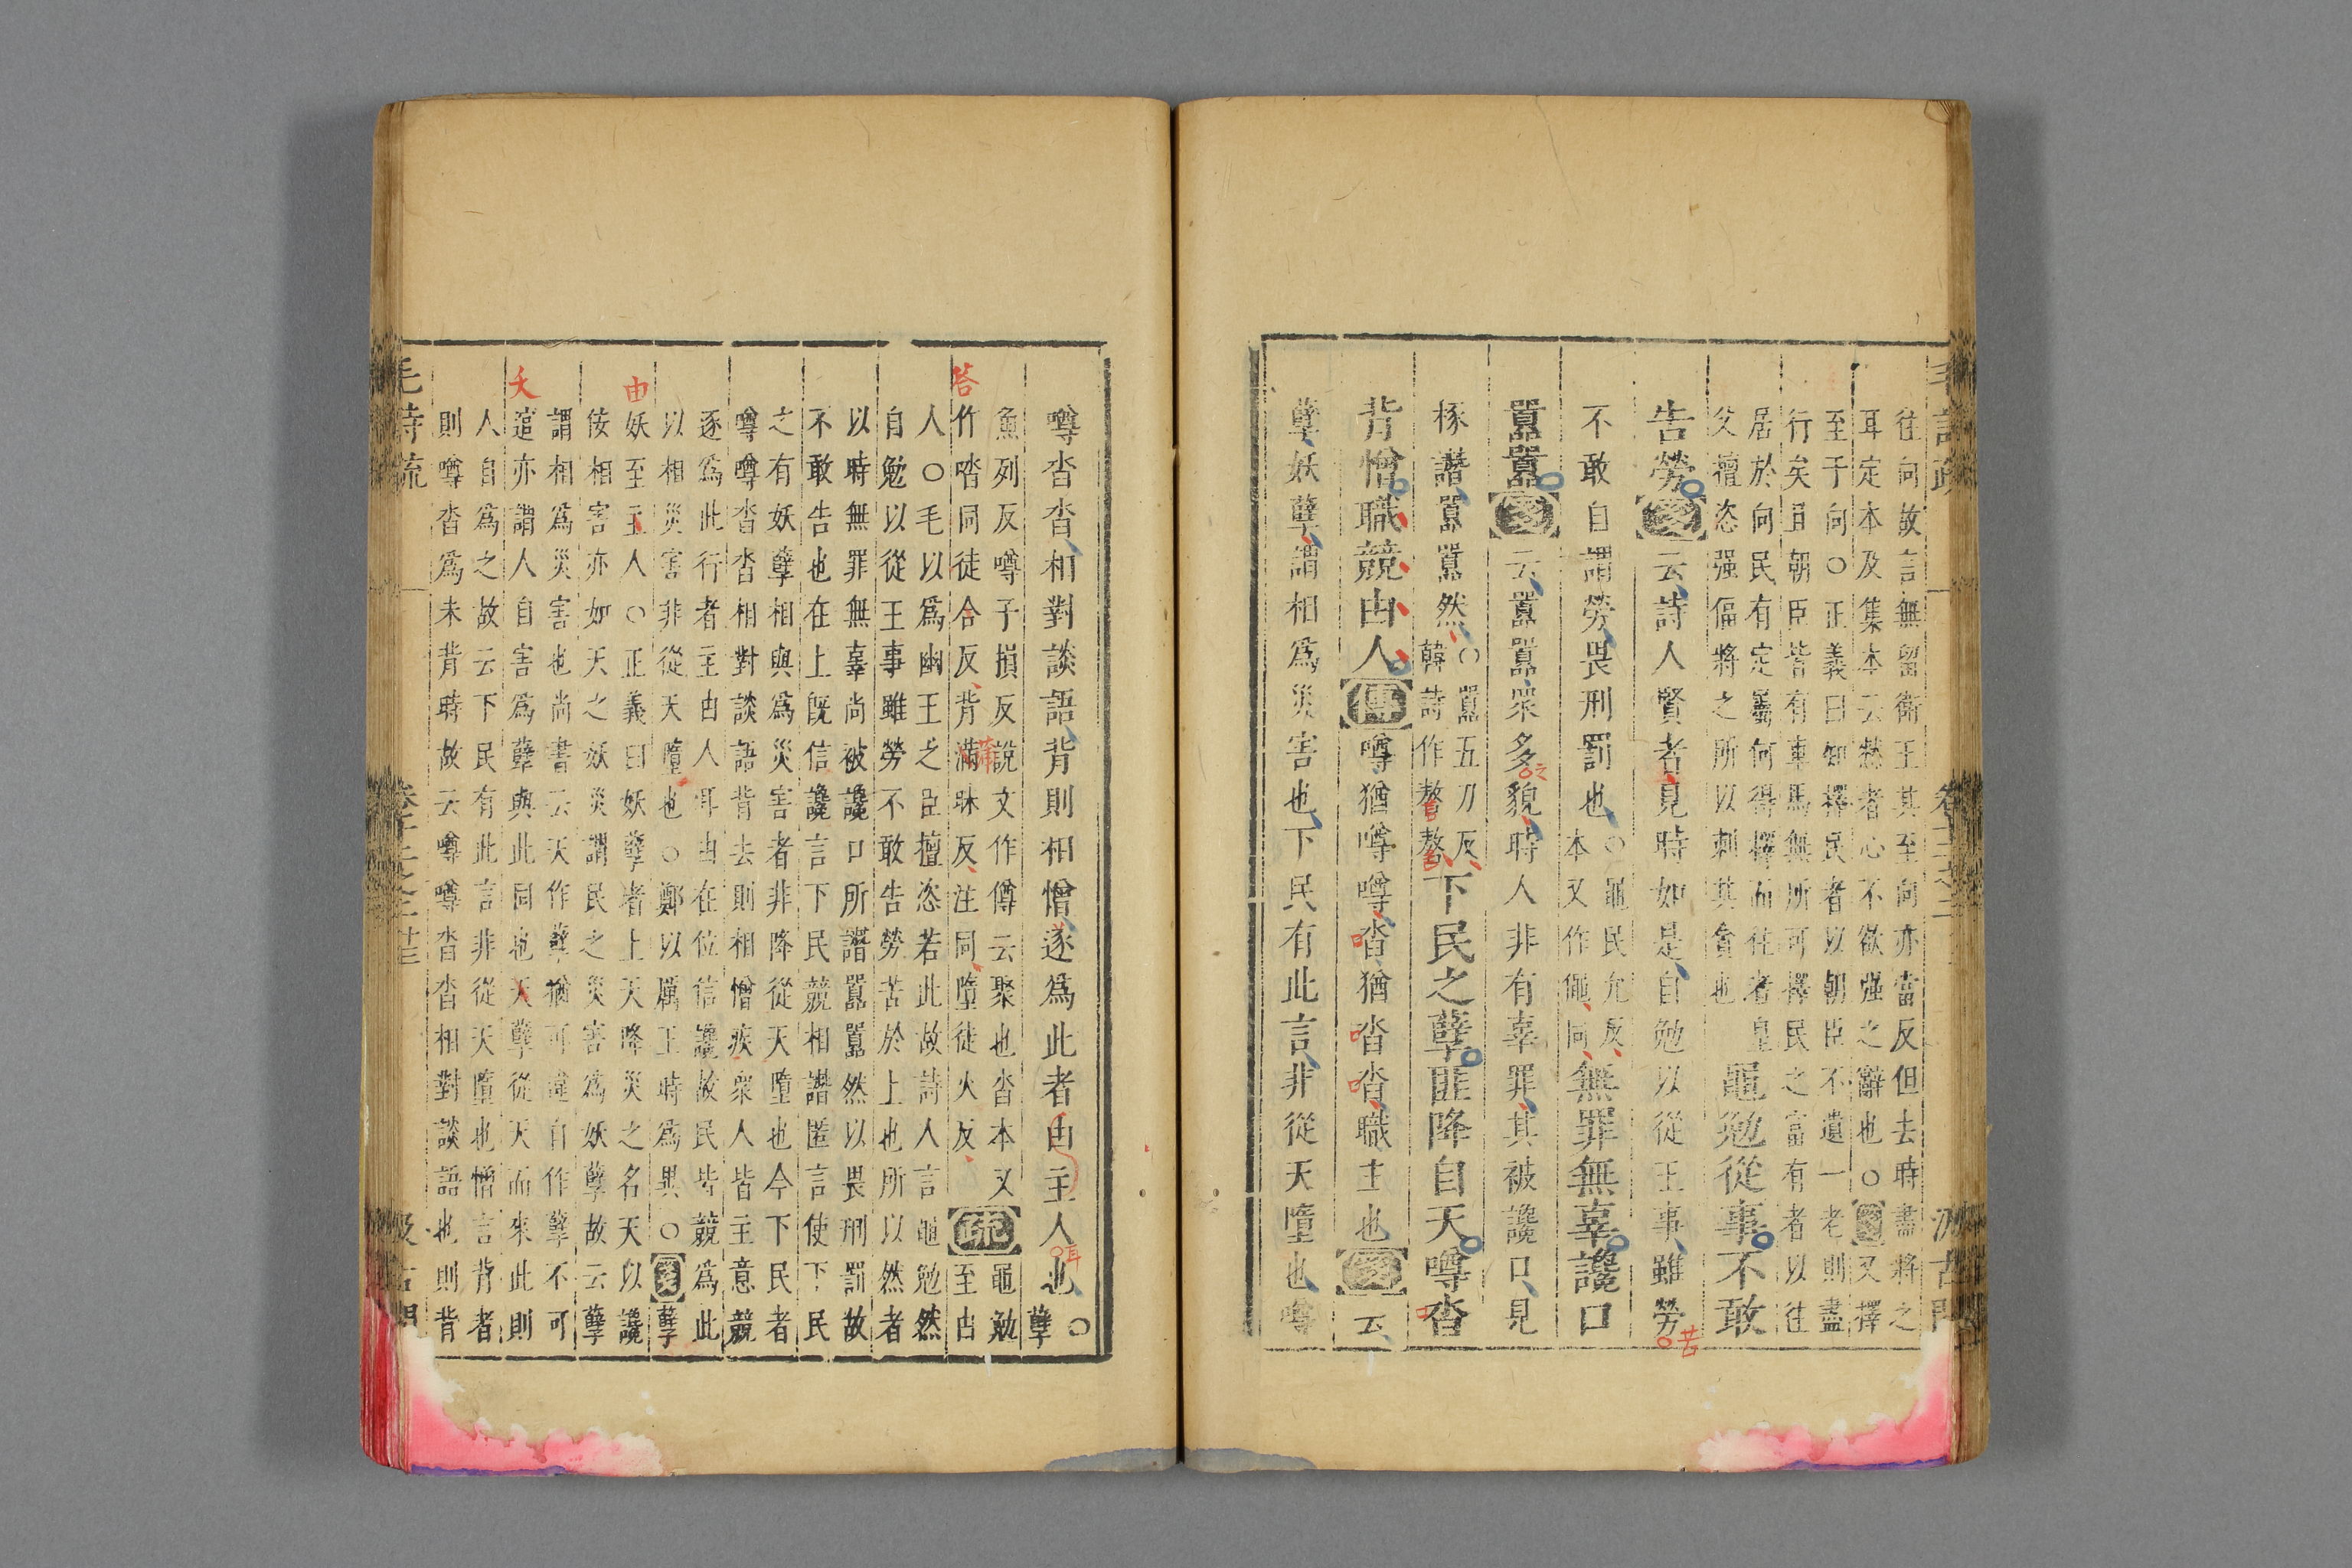 往向故言無留衛王其至向亦當反但去時盡將之
耳定本及集本云憖者心不欲强之辭也○箋又擇
至于向○正義曰知擇民者以朝臣不遺一老則盡
行矣且朝臣皆有車馬無所可擇民之富有者以往
居於向民有定義何得擇而往者皇
父擅恣强偪將之所以刺其貪也
黽勉從事不敢
告勞箋云詩人賢者見時如是自勉以從王事雖勞
苦
不敢自謂勞畏刑罰也
○黽民允反
本又作僶同
無罪無辜讒口
囂囂箋云囂囂衆多貌時人非有辜罪其被讒口見
之
椓譖囂囂然
○囂五刀反
韓詩作謷謷
下民之孽匪降自天噂沓
背憎職競由人傳噂猶噂噂沓猶沓沓職主也箋云
孽妖孽謂相爲災害也下民有此言非從天墮也噂
噂沓沓相對談語背則相憎逐爲此者由主人也
耳
○
孽
魚列反噂子損反說文作僔云聚也沓本又
作㗳同徒合反背蒲昧反注同墮徒火反
答
疏
黽勉
至由
人○毛以爲幽王之臣擅恣若此故詩人言黽勉然
自勉以從王事雖勞不敢告勞苦於上也所以然者
以時無罪無辜尚被讒口所譖囂囂然以畏刑罰故
不敢告也在上既信讒言下民競相譖匿言使下民
之有妖孽相與爲災害者非降從天墮也今下民者
噂噂沓沓相對談語背去則相憎疾衆人皆主意競
逐爲此行者主由人耳由在位信讒故民皆競爲此
以相災害非從天墮也○鄭以厲王時爲異○箋孽
妖至主人○正義曰妖孽者上天降災之名天以讒
由
侫相害亦如天之妖災謂民之災害爲妖孽故云孽
謂相爲災害也尚書云天作孽猶可違自作孽不可
逭亦謂人自害爲孽與此同也天孽從天而來此則
天
人自爲之故云下民有此言非從天墮也憎言背者
則噂沓爲未背時故云噂噂沓沓相對談語也則背
毛詩疏